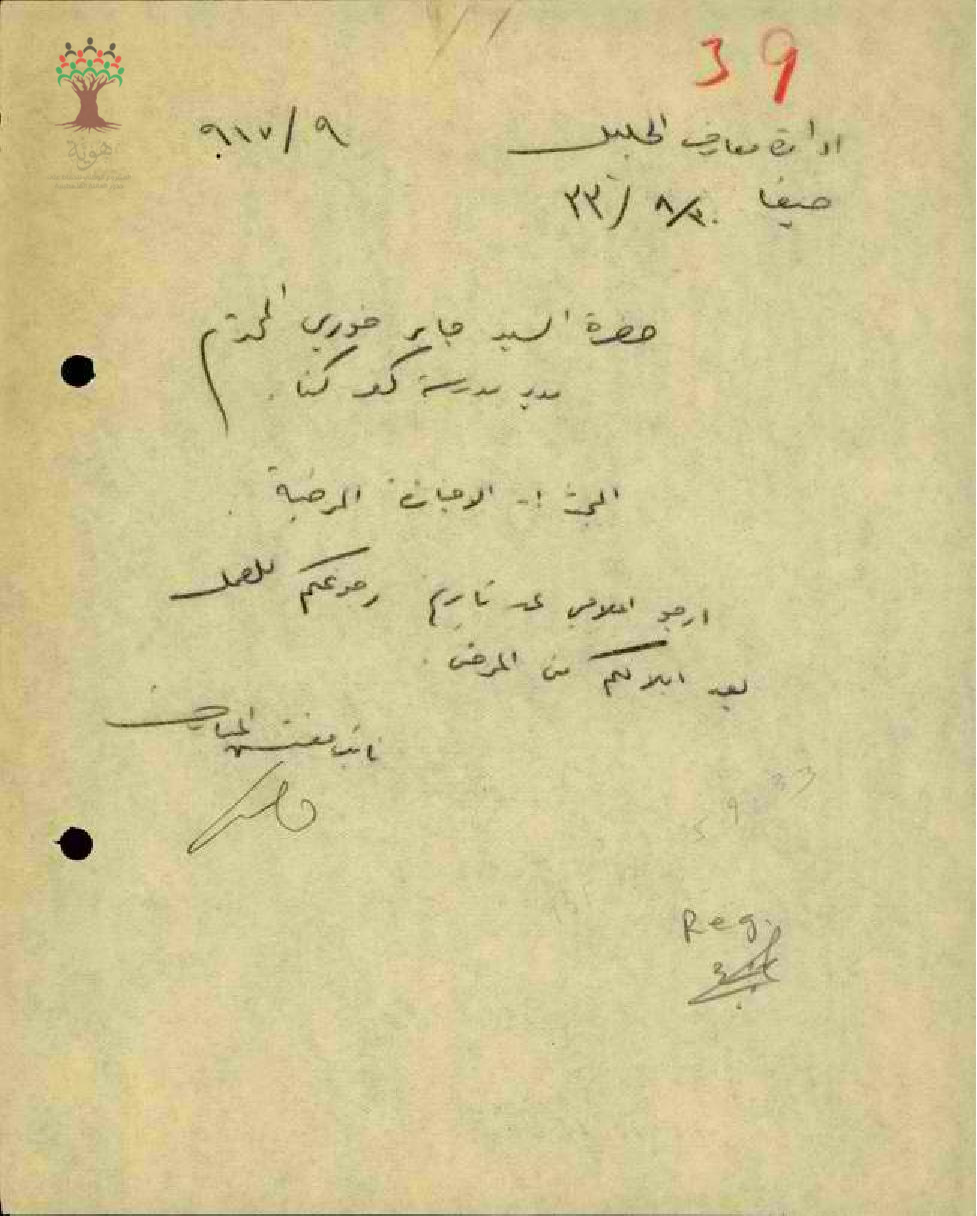 39
ادارة معارف الجليل
٩١٧/٩
حيفا ٣٣/٨/٣٠
حضرة السيد جابر خوري المحترم
مدير مدرسة كفر كنا.
المبحث :- الاجازة المرضية.
ارجو اعلامي عن تاريخ رجوعكم للعمل
بعد ابلالكم من المرض.
نائب مفتش المعارف
Reg.
هوية